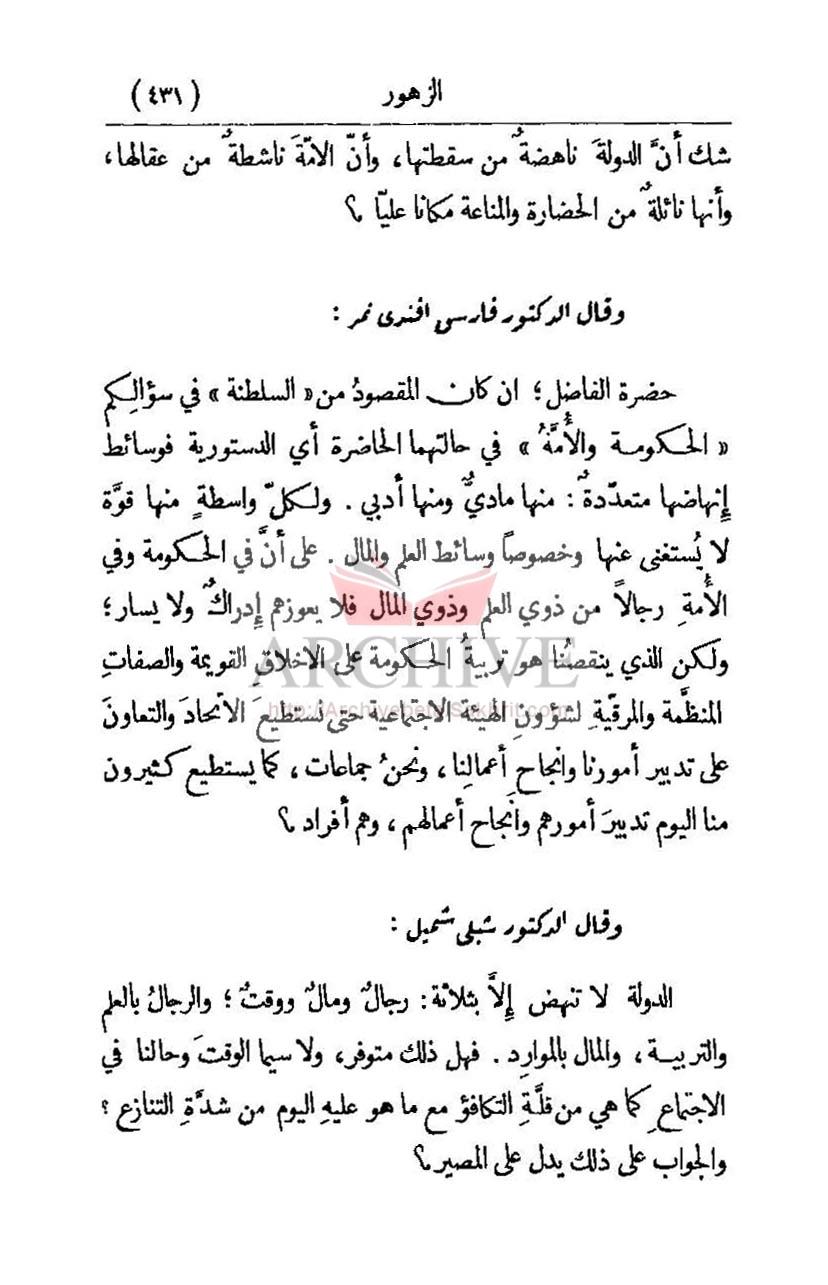 الزهور (٤٣١)
شك أنَّ الدولةَ ناهضةٌ من سقطتها، وأنّ الامّةَ ناشطةٌ من عقالها،
وأنها نائلةٌ من الحضارة والمناعة مكانا عليّا ؟
وقال الدكتور فارسى افندى نمر :
حضرة الفاضل؛ ان كان المقصودُ من « السلطنة » في سؤالِكم
« الحكومة والأُمَّةُ » في حالتهما الحاضرة أي الدستورية فوسائط
إِنهاضها متعدّدةٌ : منها ماديٌّ ومنها أدبي . ولكلّ واسطةٍ منها قوَّة
لا يُستغنى عنها وخصوصاً وسائط العلم والمال . على أنَّ في الحكومة وفي
الأُمةِ رجالاً من ذوي العلم وذوي المال فلا يعوزهم إِدراكٌ ولا يسار ؛
ولكن الذي ينقصُنا هو تربيةُ الحكومة على الاخلاقِ القويمة والصفاتِ
ARCHIVE
المنظَّمة والمرقّيةِ لشؤونِ الهيئة الاجتماعية حتى نستطيعَ الاتّحادَ والتعاونَ
http://Archivebeta.Sakhrit.com
على تدبير أمورنا وانجاحِ أعمالِنا ، ونحنُ جماعات ، كما يستطيع كثيرون
منا اليوم تدبيرَ أمورهم وانجاح أعمالهم ، وهم أفراد ؟
وقال الدكتور شبلى شميل :
الدولة لا تنهض إِلاَّ بثلاثة : رجالٌ ومالٌ ووقتٌ ؛ والرجالُ بالعلم
والتربيـة ، والمال بالموارِد . فهل ذلك متوفر ، ولا سيما الوقتَ وحالنا في
الاجتماعِ كما هي من قلَّةِ التكافؤ مع ما هو عليهِ اليوم من شدَّةِ التنازع ؟
والجواب على ذلك يدل على المصير ؟